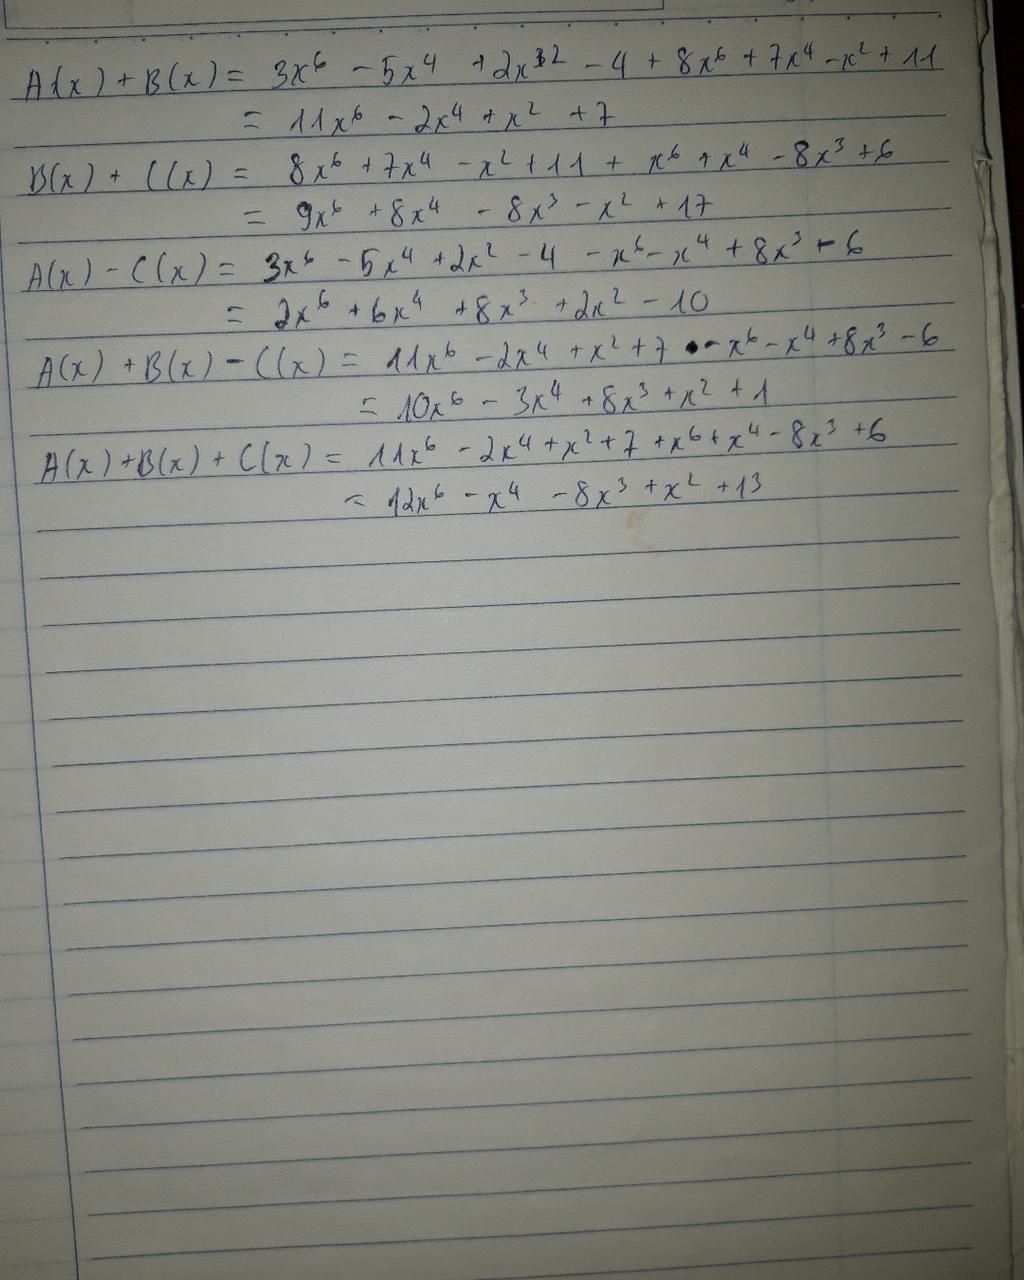 A(x) + B(x) = 3x⁶ - 5x⁴ + 2x² - 4 + 8x⁶ + 7x⁴ - x² + 11
= 11x⁶ - 2x⁴ + x² + 7
B(x) + C(x) = 8x⁶ + 7x⁴ - x² + 11 + x⁶ + x⁴ - 8x³ + 6
= 9x⁶ + 8x⁴ - 8x³ - x² + 17
A(x) - C(x) = 3x⁶ - 5x⁴ + 2x² - 4 - x⁶ - x⁴ + 8x³ - 6
= 2x⁶ + 6x⁴ + 8x³ + 2x² - 10
A(x) + B(x) - C(x) = 11x⁶ - 2x⁴ + x² + 7 - x⁶ - x⁴ + 8x³ - 6
= 10x⁶ - 3x⁴ + 8x³ + x² + 1
A(x) + B(x) + C(x) = 11x⁶ - 2x⁴ + x² + 7 + x⁶ + x⁴ - 8x³ + 6
= 12x⁶ - x⁴ - 8x³ + x² + 13